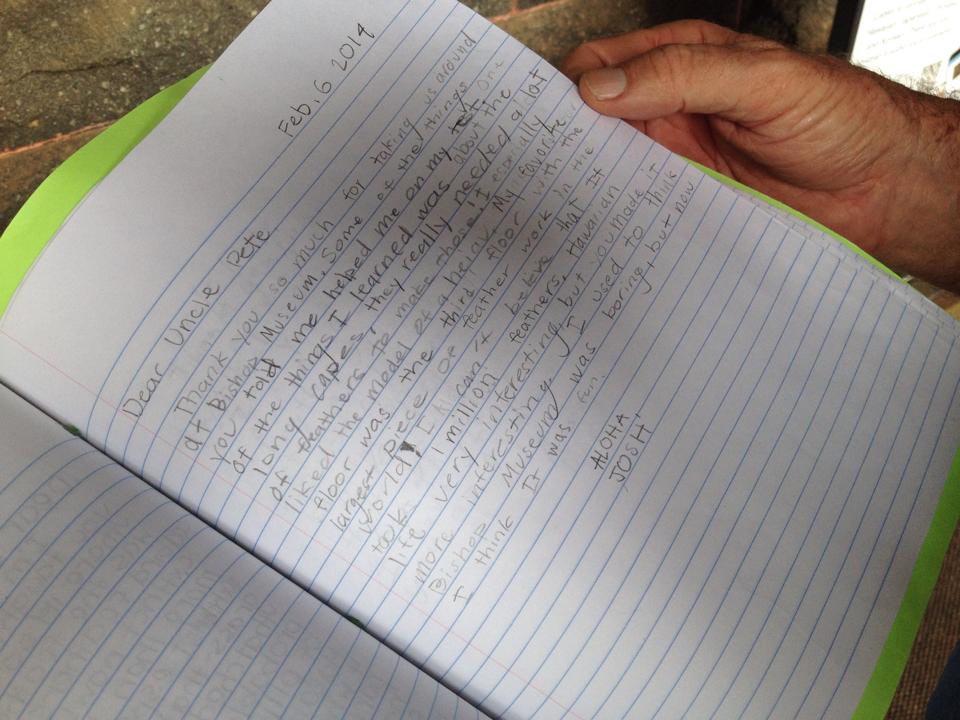 Feb. 6 2014
Dear Uncle Pete
Thank you so much for taking us around
at Bishop Museum. Some of the things
you told me helped me on my test. One
of the things I learned was about the
long capes, they really needed a lot
of feathers to make those! I especially
liked the model of a heiau. My favorite
floor was the third floor with the
largest piece of feather work in the
world! I can't believe that It
took 1 million feathers. Hawaiian
life very interesting, but you made it
more interesting. I used to think
Bishop Museum was boring, but now
I think It was fun.
ALOHA,
JOSH!